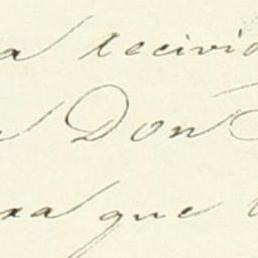 a recivid
Don
xa que